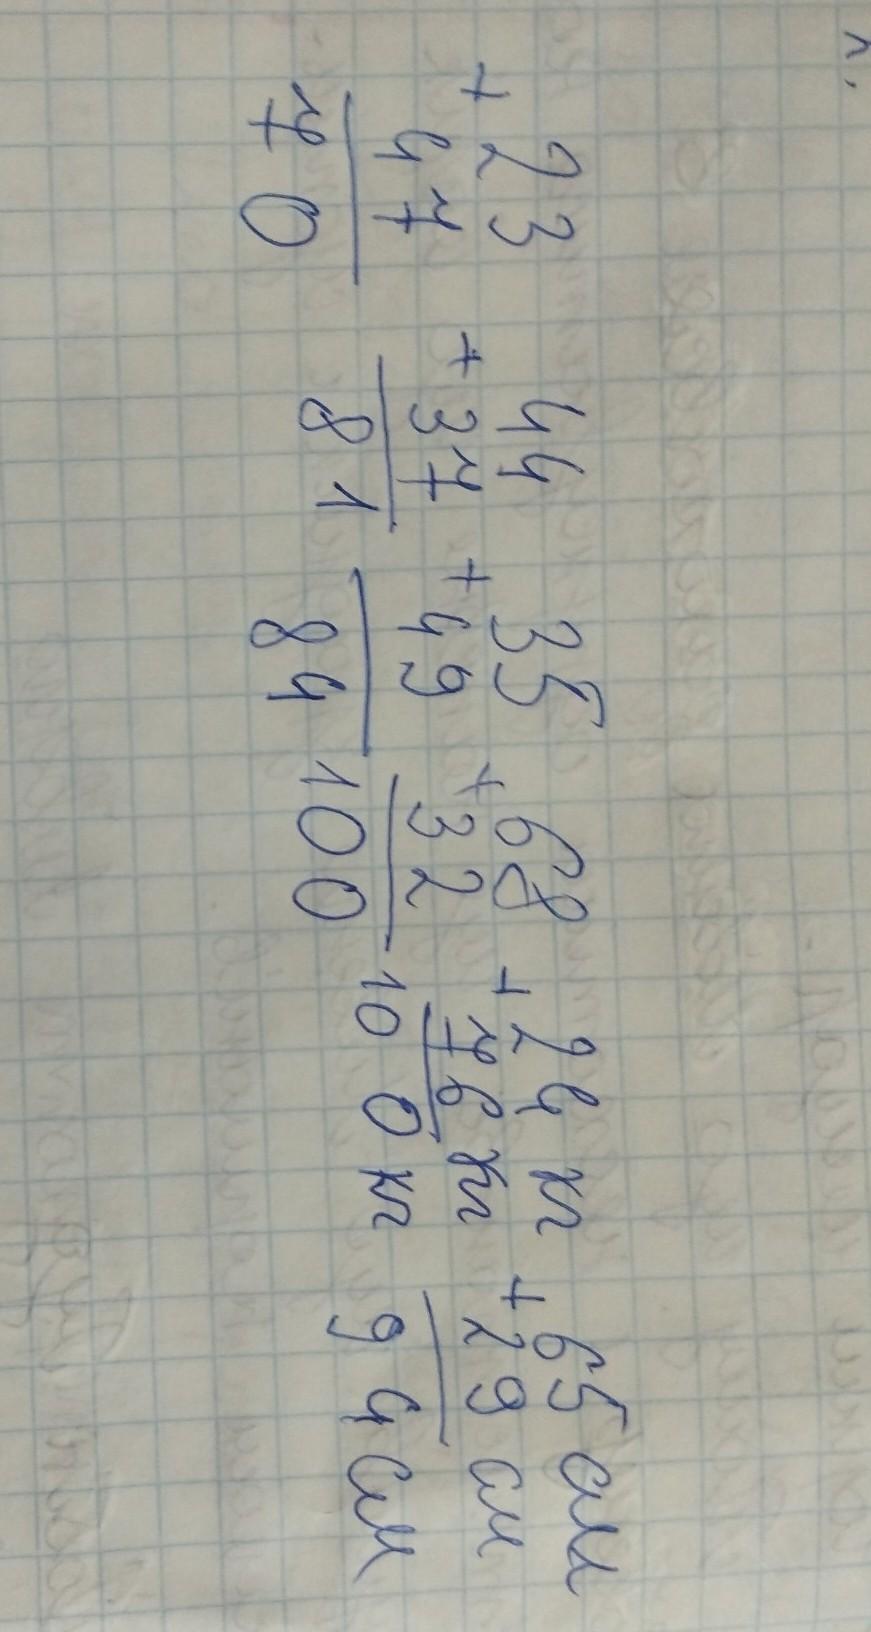 + 23 + 44 + 35 + 68 + 24 кг + 65 см
47 37 49 32 76 кг 29 см
70 81 84 100 100 кг 94 см